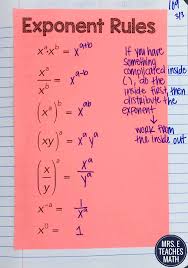 109
5/3
Exponent Rules
xᵃxᵇ = xᵃ⁺ᵇ
xᵃ/xᵇ = xᵃ⁻ᵇ
(xᵃ)ᵇ = xᵃᵇ
(xy)ᵃ = xᵃyᵃ
(x/y)ᵃ = xᵃ/yᵃ
x⁻ᵃ = 1/xᵃ
x⁰ = 1
If you have
something
complicated inside
( ), do the
inside first, then
distribute the
exponent
→ work from
the inside out
MRS. E
TEACHES
MATH